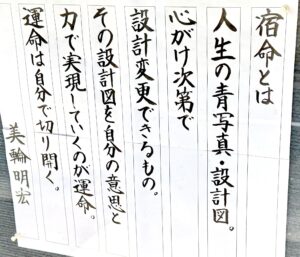 宿命とは
人生の青写真・設計図。
心がけ次第で
設計変更できるもの。
その設計図を自分の意思と
力で実現していくのが運命。
運命は自分で切り開く。
美輪明宏